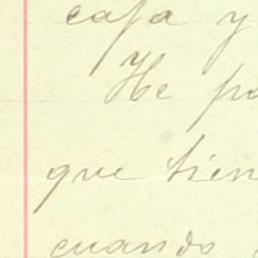 casa y
He
que tien
cuando